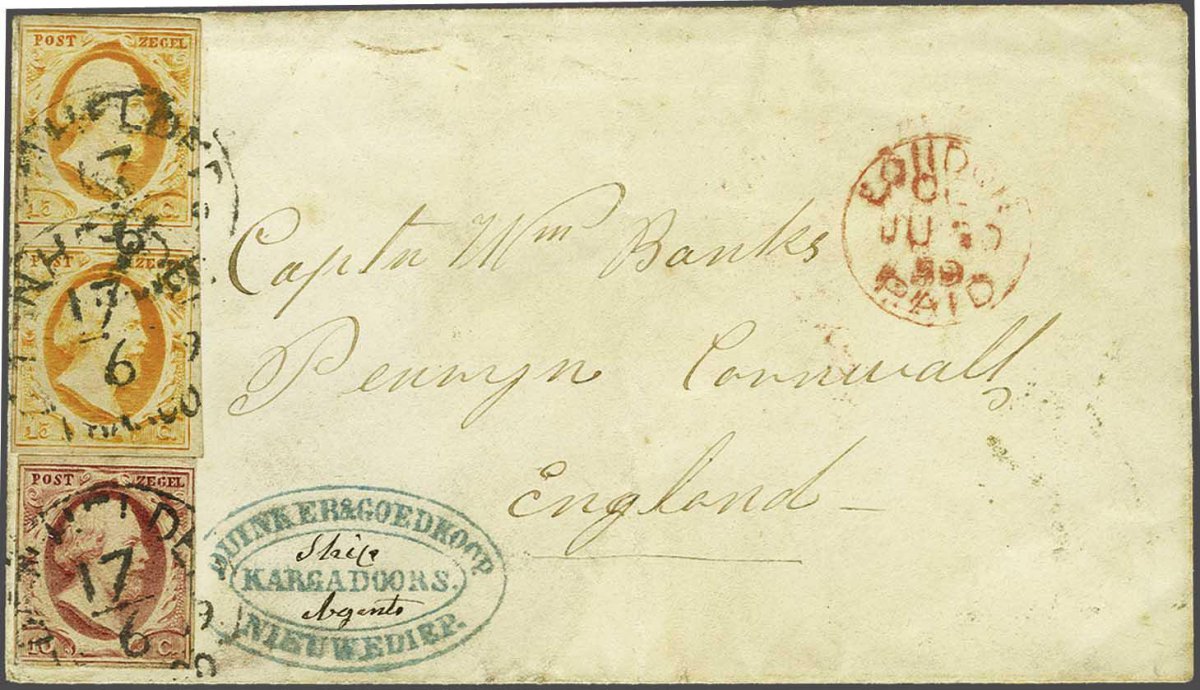 POST ZEGEL
15 C.
POST ZEGEL
17
6
15 C.
POST ZEGEL
17
6
10 C.
LONDON
JU
59
PAID
Captn Wm Banks
Penryn Cornwall
England
DUINKER & GOEDKOOP.
Ship
KARGADOORS.
Agents
NIEUWEDIEP.